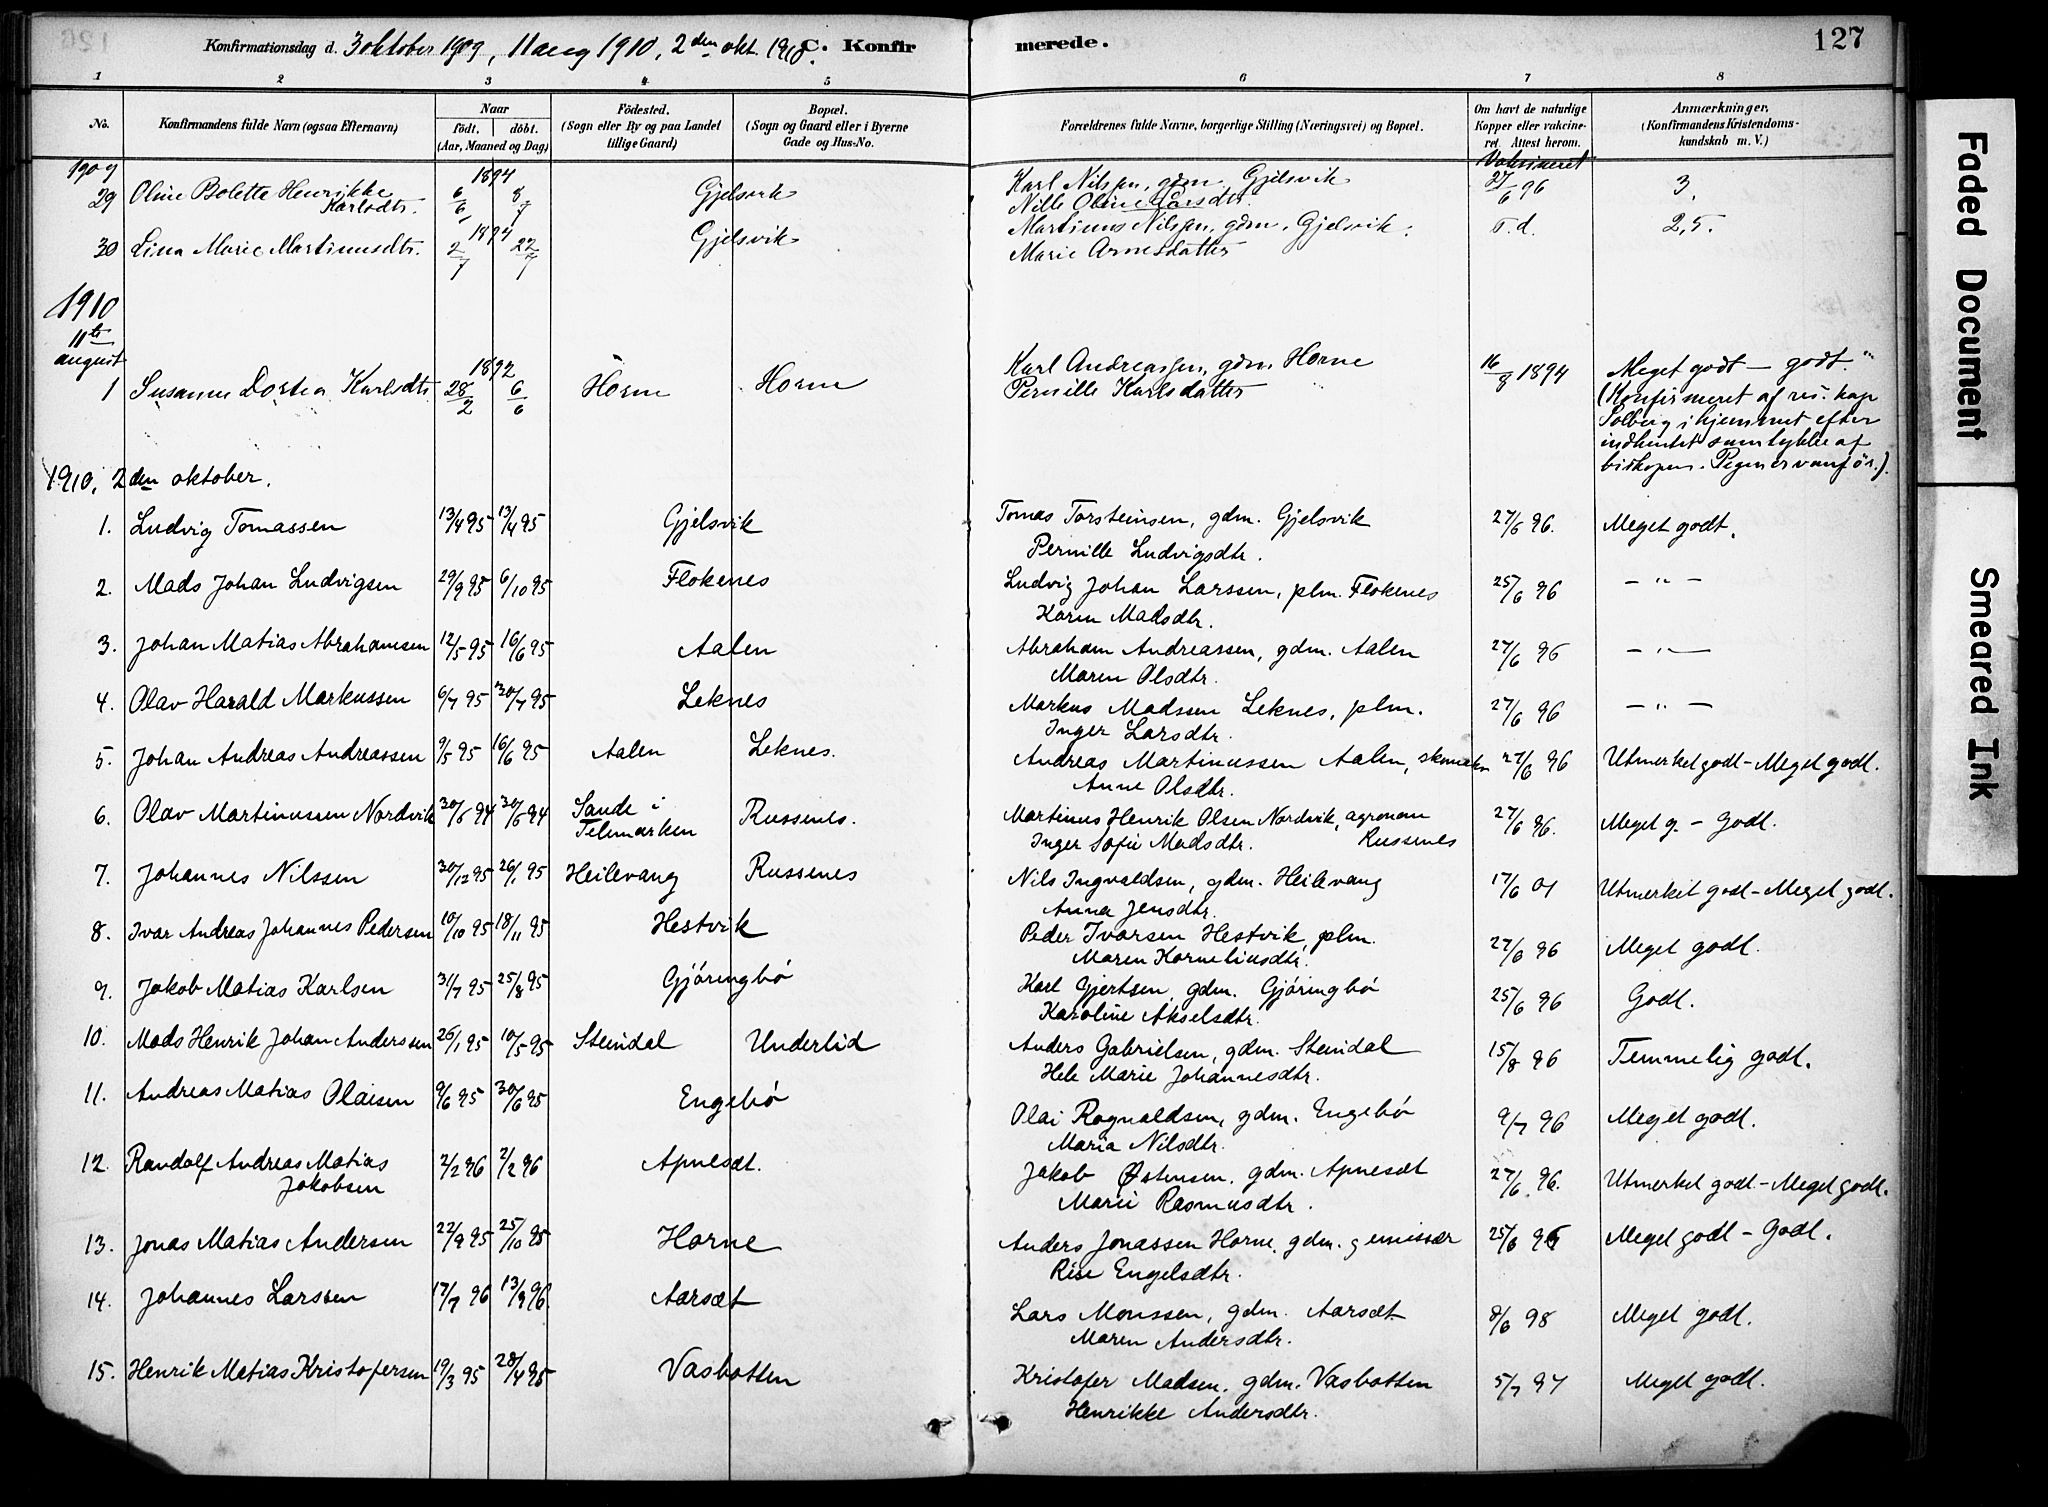 Konfirmationsdag d. 3 oktober 1909, 11 aug 1910, 2den okt. 1910. C. Konfirmerede. 127
1 2 3 4 5 6 7 8
No. Konfirmandens fulde Navn (ogsaa Efternavn) Naar født. døbt. (Aar, Maaned og Dag) Födested. (Sogn eller By og paa Landet tillige Gaard) Bopæl. (Sogn og Gaard eller i Byerne Gade og Hus-No. Forældrenes fulde Navne, borgerlige Stilling (Næringsvei) og Bopæl. Om havt de naturlige Kopper eller vakcineret. Attest herom. Anmærkninger. (Konfirmandens Kristendomskundskab m. V.)
1909 1894 Vaksineret
29 Oline Boletta Henrikke Karlsdtr. 6/6 8/7 Gjelsvik Karl Nilsen, gdm. Gjelsvik 27/6 96 3.
Nille Oline Larsdtr.
30 Lina Marie Martinusdtr. 1894 2/7 22/7 Gjelsvik Martinus Nilsen, gdm. Gjelsvik. s.d. 2,5.
Marie Arnesdatter
1910
11te august
1 Susanne Dortea Karlsdtr. 1892 28/2 6/6 Horne Horne Karl Andreassen, gdm. Horne 16/8 1894 Meget godt – godt.
Pernille Karlsdatter
(Konfirmeret af res. kap
Solberg i hjemmet efter
indhentet samtykke af
biskopen. Pigen er vanför.).
1910, 2den oktober.
1. Ludvig Tomassen 13/4 95 13/4 95 Gjelsvik Tomas Torsteinsen, gdm. Gjelsvik 27/6 96. Meget godt.
Pernille Ludvigsdtr.
2. Mads Johan Ludvigsen 29/9 95 6/10 95 Flokenes Ludvig Johan Larssen, plm. Flokenes 25/6 96 – " –
Karen Madsdtr.
3. Johan Matias Abrahamsen 12/5 95 16/6 95 Aalen Abraham Andreassen, gdm. Aalen 27/6 96 – " –
Maren Olsdtr.
4. Olav Harald Markussen 6/7 95 30/7 95 Leknes Markus Madssen Leknes, plm. 27/6 96 – " –
Inger Larsdtr.
5. Johan Andreas Andreassen 9/5 95 16/6 95 Aalen Leknes. Andreas Martinussen Aalen, skomaker 27/6 96 Utmerket godt – Meget godt.
Anne Olsdtr.
6. Olav Martinussen Nordvik 30/5 94 30/5 94 Sande i Telemarken Russenes. Martinus Henrik Olsen Nordvik, agronom 27/6 96. Meget g. – Godt.
Inger Sofie Madsdtr. Russenes
7. Johannes Nilssen 30/12 95 26/1 95 Heilevang Russenes Nils Ingvaldsen, gdm. Heilevang 17/6 01 Utmerket godt – Meget godt.
Anna Jensdtr.
8. Ivar Andreas Johannes Pedersen 10/10 95 18/11 95 Hestvik Peder Ivarsen Hestvik, plm. 27/6 96 Meget godt.
Maren Korneliusdtr.
9. Jakob Matias Karlsen 31/7 95 25/8 95 Gjöringbö Karl Gjertsen gdm. Gjöringbö 25/6 96 Godt.
Karoline Akselsdtr.
10. Mads Henrik Johan Anderssen 26/1 95 10/5 95 Steindal Underlid Anders Gabrielsen, gdm. Steindal 15/8 96 Temmelig godt.
Hele Marie Johannesdtr.
11. Andreas Matias Olaisen 9/6 95 30/6 95 Engebö Olai Ragnaldsen, gdm. Engebö 9/7 96 Meget godt.
Maria Nilsdtr.
12. Randolf Andreas Matias Jakobsen 2/2 96 2/2 96 Apnesæt. Jakob Östensen, gdm. Apnesæt 27/6 96. Utmerket godt – Meget godt.
Marie Rasmusdtr.
13. Jonas Matias Andersen 22/9 95 25/10 95 Horne Anders Jonassen Horne, gdm. g emissær 25/6 96 Meget godt – Godt.
Rise Engelsdtr.
14. Johannes Larssen 17/7 96 13/9 96. Aarsæt Lars Monssen, gdm. Aarsæt 8/6 98 Meget godt.
Maren Andersdtr.
15. Henrik Matias Kristofersen 19/3 95 28/4 95 Vasbotten Kristofer Madsen, gdm. Vasbotten 5/7 97 Meget godt.
Henrikke Andersdtr.
Faded Document
Smeared Ink